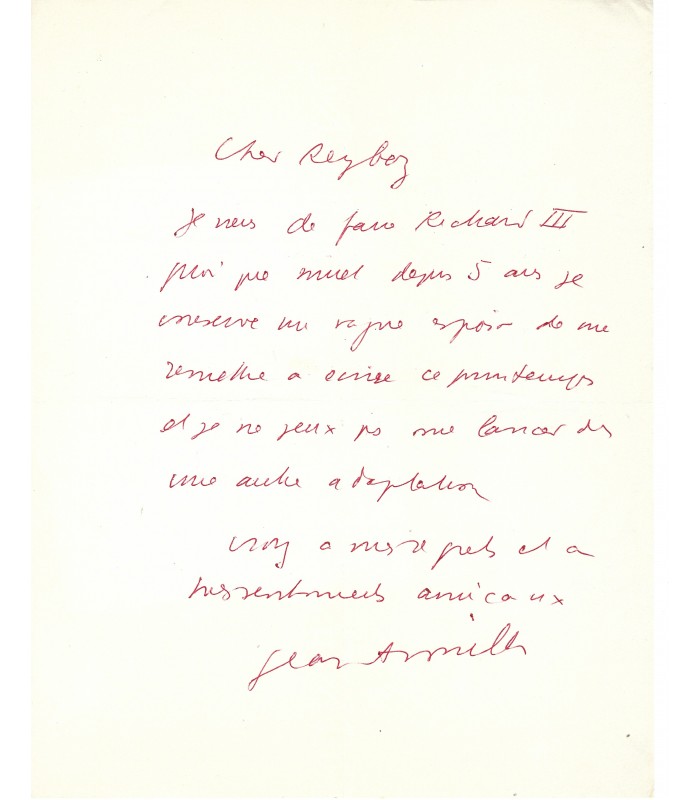 Cher Reybaz
Je viens de faire Richard III
Moi que muet depuis 5 ans je
conserve un vague espoir de me
remettre à écrire ce printemps
et je ne peux pas me lancer ds
une autre adaptation
croyez à mes regrets et à
mes sentiments amicaux
Jean Anouilh